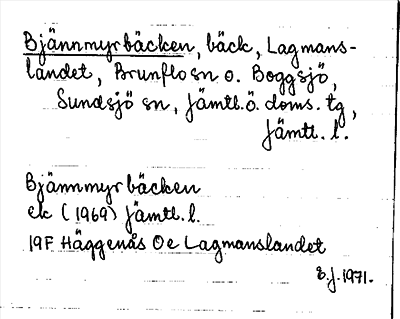 Bjännmyrbäcken, bäck, Lagmans-
landet, Brunflo sn o. Boggsjö,
Sundsjö sn, Jämtl.ö. doms. tg,
Jämtl. l.
Bjännmyrbäcken
ek (1969) Jämtl. l.
19F Häggenås Oe Lagmanslandet
E.J. 1971.